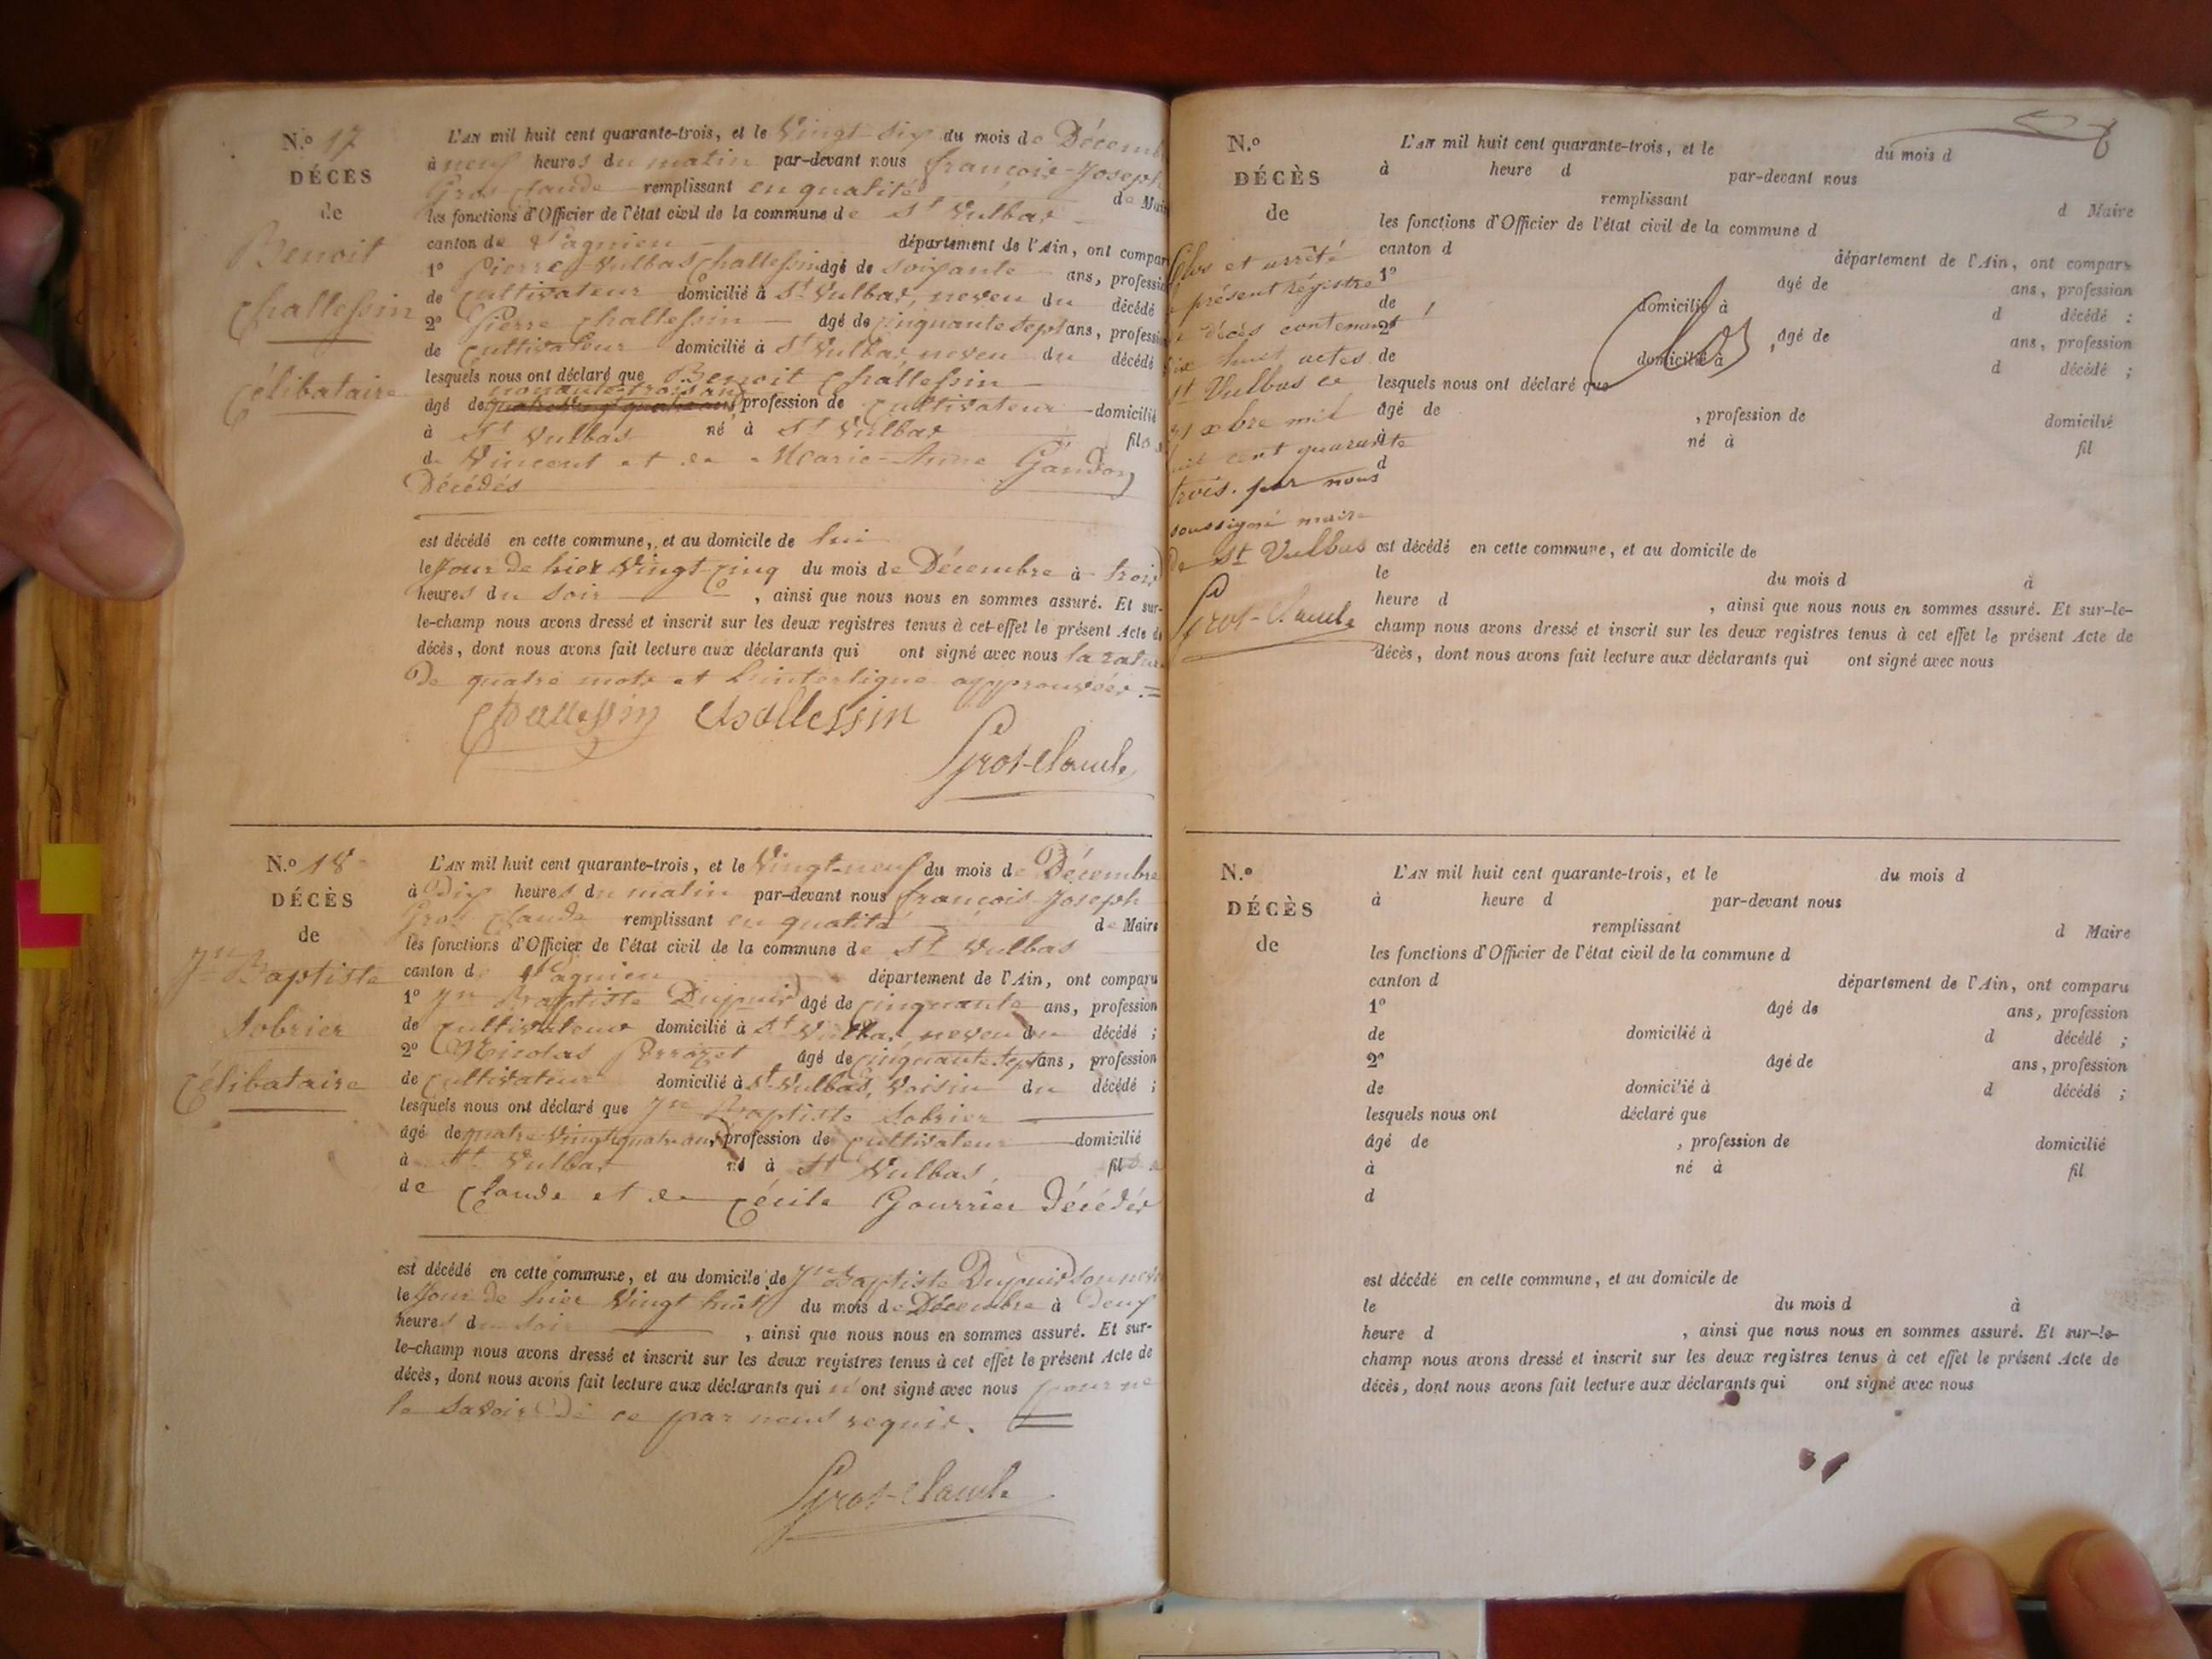 N.º 17
DÉCÈS
de
Benoit
Challessin
célibataire
L'AN mil huit cent quarante-trois, et le Vingt-six du mois de Décemb
à neuf heures du matin par-devant nous françois-Joseph
Gros-Claude remplissant en qualité de Mair
les fonctions d'Officier de l'état civil de la commune de St Vulbas
canton de Lagnieu département de l'Ain, ont compar
1º Pierre Vulbas Challessin âgé de soixante ans, professio
de Cultivateur domicilié à St Vulbas, neveu du décédé
2º Pierre Challessin âgé de cinquante sept ans, professi
de Cultivateur domicilié à St Vulbas, neveu du décédé
lesquels nous ont déclaré que Benoit Challessin
nonante trois ans
âgé de profession de Cultivateur domicilié
à St Vulbas né à St Vulbas fils
de Vincent et de Marie-Anne Gandon
Décédés
est décédé en cette commune, et au domicile de lui
le Jour de hier Vingt-Cinq du mois de Décembre à trois
heures du soir , ainsi que nous nous en sommes assuré. Et sur-
le-champ nous avons dressé et inscrit sur les deux registres tenus à cet effet le présent Acte d
décès, dont nous avons fait lecture aux déclarants qui ont signé avec nous la ratur
De quatre mots et l'interligne approuvées.=
Challessin Challessin
Gros-Claude
N.º 18
DÉCÈS
de
Jn Baptiste
Sobrier
Célibataire
L'AN mil huit cent quarante-trois, et le Vingt-neuf du mois de Décembre
à Dix heures du matin par-devant nous françois-Joseph
Gros-Claude remplissant en qualité de Maire
les fonctions d'Officier de l'état civil de la commune de St Vulbas
canton de Lagnieu département de l'Ain, ont comparu
1º Jn Baptiste Dupuis âgé de cinquante ans, profession
de Cultivateur domicilié à St Vulbas, neveu du décédé ;
2º Nicolas Perrozet âgé de cinquante sept ans, profession
de Cultivateur domicilié à St Vulbas, Voisin du décédé ;
lesquels nous ont déclaré que Jn Baptiste Sobrier
âgé de quatre Vingt quatre ans, profession de Cultivateur domicilié
à St Vulbas né à St Vulbas, fils
de Claude et de Cécile Gourrier Décédés
est décédé en cette commune, et au domicile de Jn Baptiste Dupuis son neveu
le Jour de hier Vingt huit du mois de Décembre à Deux
heures du soir , ainsi que nous nous en sommes assuré. Et sur-
le-champ nous avons dressé et inscrit sur les deux registres tenus à cet effet le présent Acte de
décès, dont nous avons fait lecture aux déclarants qui n'ont signé avec nous pour ne
le savoir De ce par nous requis.
Gros-Claude
N.º
DÉCÈS
de
Clos et arrêté
le présent régistre
de décès contenant
dix huit actes
St Vulbas ce
31 xbre mil
huit cent quarante
trois. par nous
soussigné maire
de St Vulbas
Gros-Claude
L'AN mil huit cent quarante-trois, et le du mois d
à heure d par-devant nous
remplissant d Maire
les fonctions d'Officier de l'état civil de la commune d
canton d département de l'Ain, ont comparu
1º âgé de ans, profession
de domicilié à d décédé ;
Clos
2º âgé de ans, profession
de domicilié à d décédé ;
lesquels nous ont déclaré que
âgé de , profession de domicilié
à né à fil
d
est décédé en cette commune, et au domicile de
le du mois d à
heure d , ainsi que nous nous en sommes assuré. Et sur-le-
champ nous avons dressé et inscrit sur les deux registres tenus à cet effet le présent Acte de
décès, dont nous avons fait lecture aux déclarants qui ont signé avec nous
N.º
DÉCÈS
de
L'AN mil huit cent quarante-trois, et le du mois d
à heure d par-devant nous
remplissant d Maire
les fonctions d'Officier de l'état civil de la commune d
canton d département de l'Ain, ont comparu
1º âgé de ans, profession
de domicilié à d décédé ;
2º âgé de ans, profession
de domicilié à d décédé ;
lesquels nous ont déclaré que
âgé de , profession de domicilié
à né à fil
d
est décédé en cette commune, et au domicile de
le du mois d à
heure d , ainsi que nous nous en sommes assuré. Et sur-le-
champ nous avons dressé et inscrit sur les deux registres tenus à cet effet le présent Acte de
décès, dont nous avons fait lecture aux déclarants qui ont signé avec nous